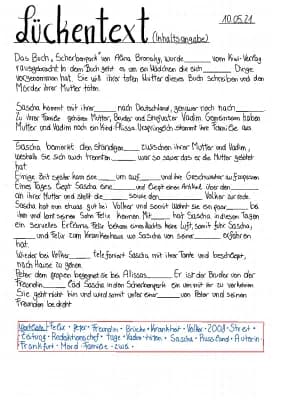 Lückentext (Inhaltsangabe) 10.05.21
Das Buch „Scherbenpark" von Alina Bronsky, wurde ______ vom Kiwi-Verlag
rausgebracht. In dem Buch geht es um ein Mädchen die sich ______ Dinge
vorgenommen hat. Sie will ihrer toten Mutter dieses Buch schreiben und den
Mörder ihrer Mutter töten.
Sascha kommt mit ihrer ______ nach Deutschland, genauer nach ______
Zu ihrer Familie gehören Mutter, Bruder und Stiefvater Vadim. Gemeinsam haben
Mutter und Vadim noch ein Kind Alissa. Ursprünglich stammt ihre Familie aus
______
Sascha bemerkt den ständigen ______ zwischen ihrer Mutter und Vadim,
weshalb Sie sich auch freut
______ war so sauer das er die Mutter getötet
hat.
Einige Zeit später kam eine ______ um auf ______ und ihre Geschwister aufzupassen.
Eines Tages liest Sascha eine ______ und liest einen Artikel über den ______
an ihrer Mutter und stellt die ______ sowie den ______ Volker zur rede.
Sascha hat ein etwas gut bei Volker und somit wohnte sie ein paar ______ bei
ihm und lernt seinen Sohn Felix kennen. Mit ______ hat Sascha in diesen Tagen
ein sexuelles Erlebnis. Felix bekam eines Nachts keine Luft, somit fuhr Sascha,
______ und Felix zum Krankenhaus wo Sascha von seiner ______ erfahren
hat.
Wieder bei Volker ______ telefoniert Sascha mit ihrer Tante und beschließt,
nach Hause zu gehen.
Peter dem großen begegnet sie bei Alissas ______. Er ist der Bruder von der
Freundin. ______ lädt Sascha in den Scherbenpark ein um mit ihr zu verkehren.
Sie geht nicht hin und wird somit unter einer ______ von Peter und seinen
Freunden bedroht.
Wortkiste: Felix · Peter · Freundin · Brücke · Krankheit · Volker · 2008 · Streit ·
Zeitung · Redaktionschef · Tage · Vadim · töten · Sascha · Russland · Autorin ·
Frankfurt · Mord · Familie · zwei ·